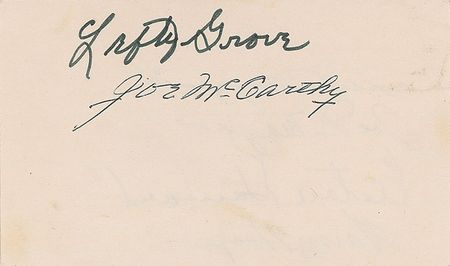 Lefty Grove
Joe McCarthy